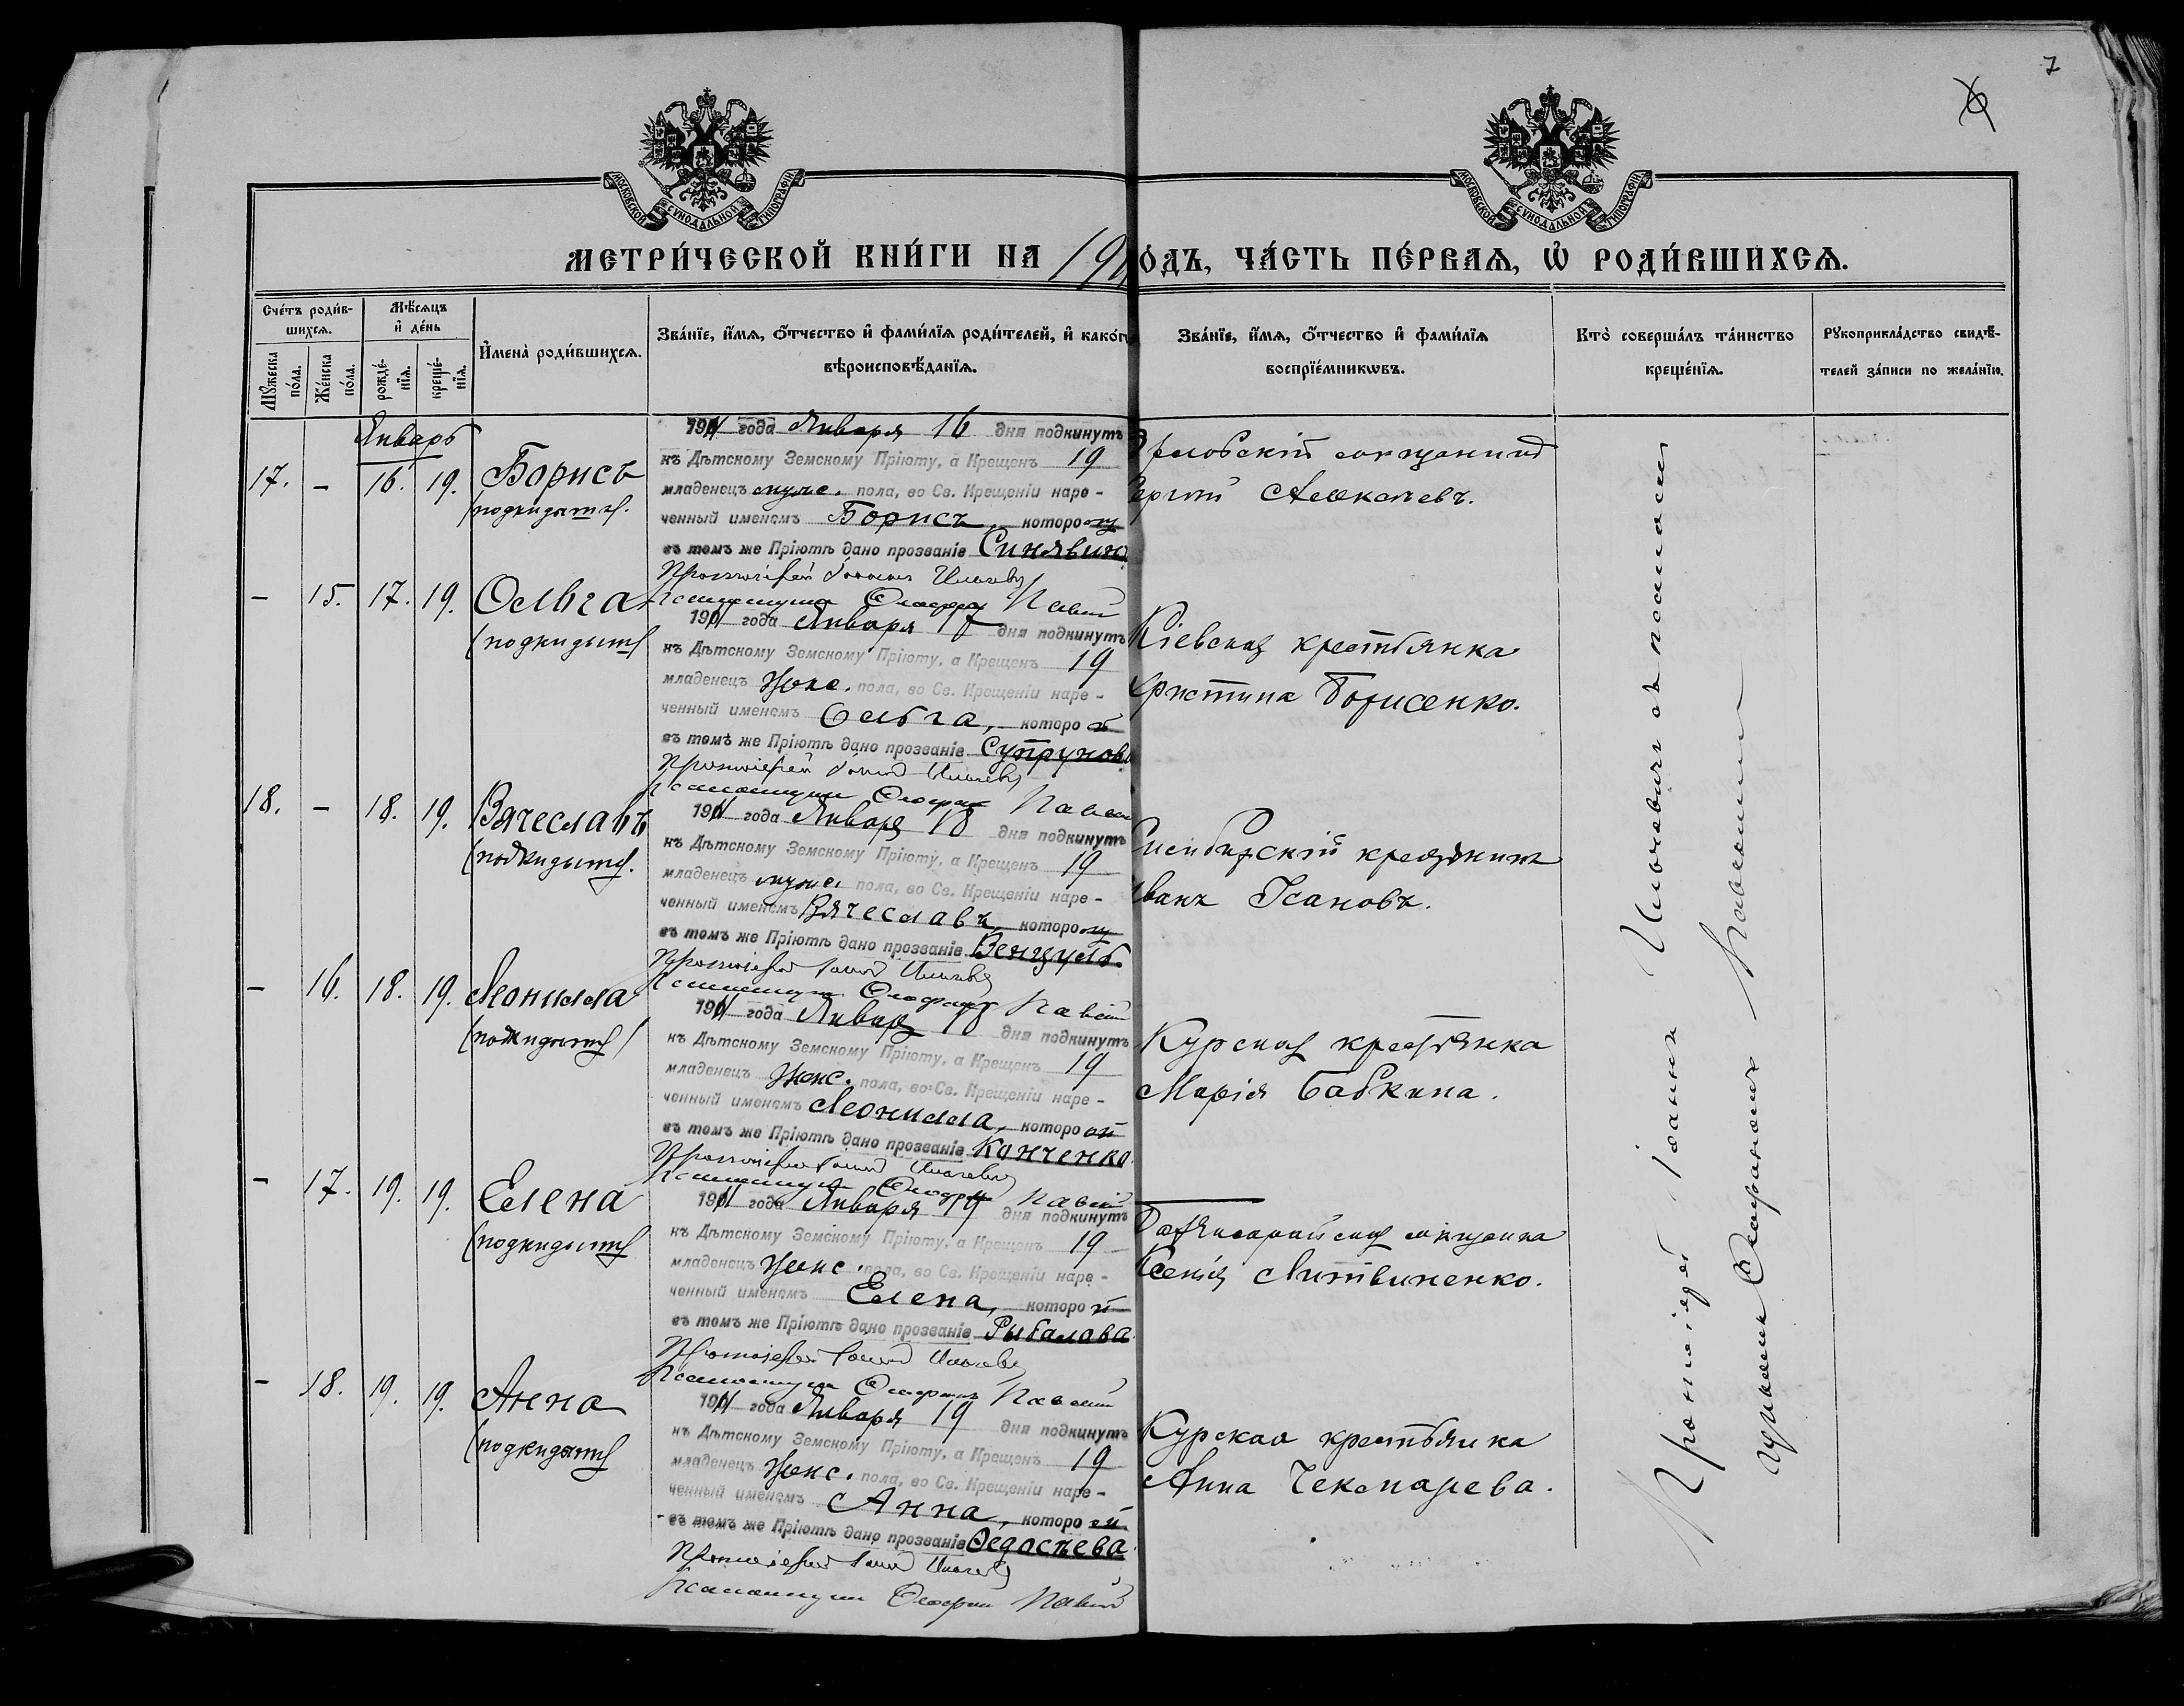 7
6
МОСКОВСКОЙ СУНОДАЛЬНОЙ ТИПОГРАФІИ
МОСКОВСКОЙ СУНОДАЛЬНОЙ ТИПОГРАФІИ
МЕТРИ́ЧЕСКОЙ КНИ́ГИ НА 191 ОДЪ, ЧА́СТЬ ПЕ́РВАѦ, Ѡ҆ РОДИ́ВШИХСѦ.
Сче́тъ роди́в-
шихсѧ.
Мꙋ́жеска по́ла.
Же́нска по́ла.
Мѣ́сѧцъ
и҆ де́нь
рожде́-
нїѧ.
креще́-
нїѧ.
И҆мена̀ роди́вшихсѧ.
Зва́нїе, и҆́мѧ, ѻ҆́тчество и҆ фами́лїѧ роди́телей, и҆ како́г
вѣроисповѣ́данїѧ.
Зва́нїе, и҆́мѧ, ѻ҆́тчество и҆ фами́лїѧ
воспрїе́мникѡвъ.
Кто̀ соверша́лъ та́инство
креще́нїѧ.
Рꙋкоприкла́дство свидѣ́-
телей за́писи по жела́нїю.
Январь
17. - 16. 19. Борисъ
(подкидышъ).
1911 года Января 16 дня подкинутъ
къ Дѣтскому Земскому Пріюту, а Крещенъ 19
младенецъ муже. пола, во Св. Крещеніи наре-
ченный именемъ Борисъ, которому
въ томъ же Пріютѣ дано прозваніе Синявин
Протоіерей Іоаннъ Ильичевъ
Псаломщикъ
рловскій мѣщанинъ
ергій
- 15. 17. 19. Ольга
(подкидышъ)
1911 года Января 17 дня подкинутъ
къ Дѣтскому Земскому Пріюту, а Крещенъ 19
младенецъ женс. пола, во Св. Крещеніи наре-
ченный именемъ Ольга, которой
въ томъ же Пріютѣ дано прозваніе Супрунов
Протоіерей Іоаннъ Ильичевъ
Псаломщикъ
Кіевская крестьянка
Христина Борисенко.
18. - 18. 19. Вячеславъ
(подкидышъ).
1911 года Января 18 дня подкинутъ
къ Дѣтскому Земскому Пріюту, а Крещенъ 19
младенецъ муже. пола, во Св. Крещеніи наре-
ченный именемъ Вячеславъ, которому
въ томъ же Пріютѣ дано прозваніе Венгуль.
Протоіерей Іоаннъ Ильичевъ
Псаломщикъ
Симбирскій крестьянинъ
Иванъ Исановъ.
- 16. 18. 19. Леонилла
(подкидышъ)
1911 года Января 18 дня подкинутъ
къ Дѣтскому Земскому Пріюту, а Крещенъ 19
младенецъ женс. пола, во Св. Крещеніи наре-
ченный именемъ Леонилла, которой
въ томъ же Пріютѣ дано прозваніе Конченко.
Протоіерей Іоаннъ Ильичевъ
Псаломщикъ
Курская крестьянка
Марія Бабкина.
- 17. 19. 19. Елена
(подкидышъ)
1911 года Января 19 дня подкинутъ
къ Дѣтскому Земскому Пріюту, а Крещенъ 19
младенецъ женс. пола, во Св. Крещеніи наре-
ченный именемъ Елена, которой
въ томъ же Пріютѣ дано прозваніе Рыбалова
Протоіерей Іоаннъ Ильичевъ
Псаломщикъ
мѣщанка
Ксенія Литвиненко.
- 18. 19. 19. Анна
(подкидышъ)
1911 года Января 19 дня подкинутъ
къ Дѣтскому Земскому Пріюту, а Крещенъ 19
младенецъ женс. пола, во Св. Крещеніи наре-
ченный именемъ Анна, которой
въ томъ же Пріютѣ дано прозваніе Ѳедосѣева.
Протоіерей Іоаннъ Ильичевъ
Псаломщикъ
Курская крестьянка
Анна Чекмарева.
Протоіерей Іоаннъ Ильичевъ съ псаломщ